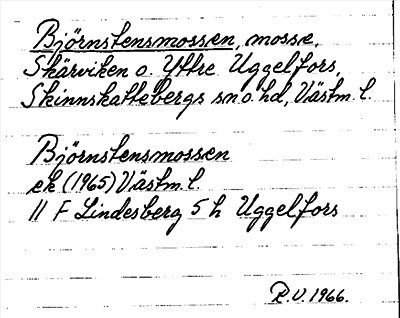 Björnstensmossen, mosse,
Skärviken o. Yttre Uggelfors,
Skinnskattebergs sn o. hd, Västm. l.
Björnstensmossen
ek (1965) Västm. l.
11 F Lindesberg 5 h Uggelfors
R.V. 1966.